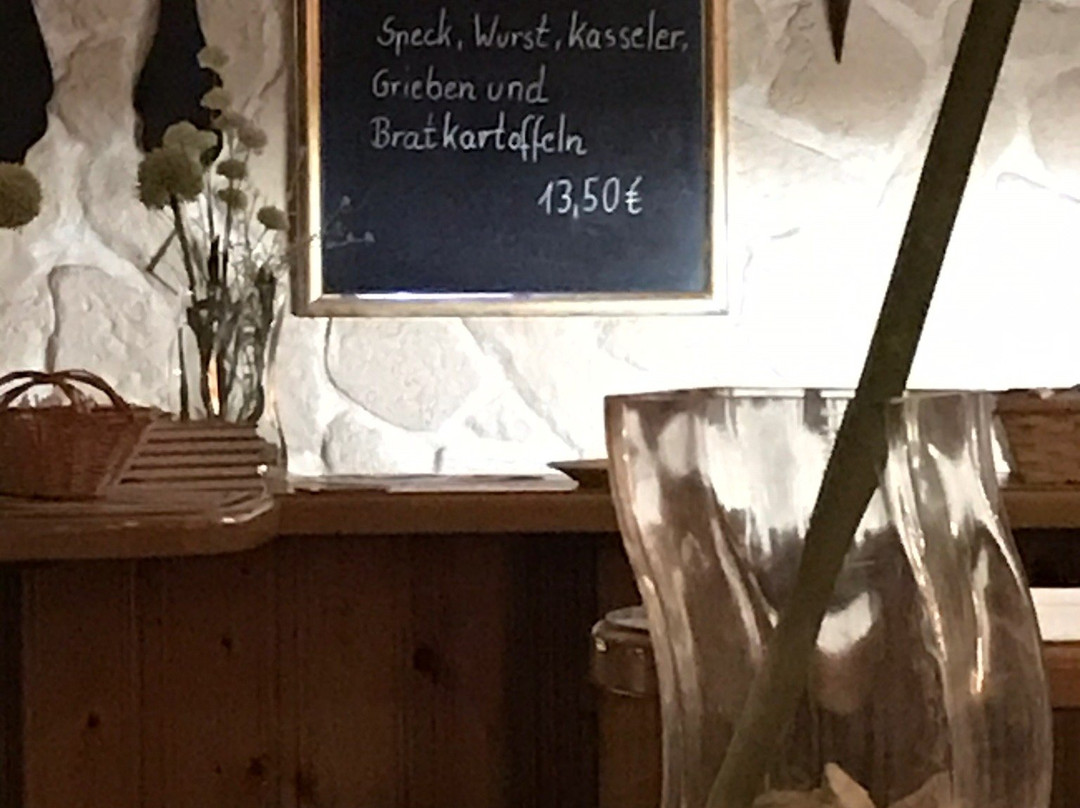 Speck, Wurst, Kasseler,
Grieben und
Bratkartoffeln
13,50€